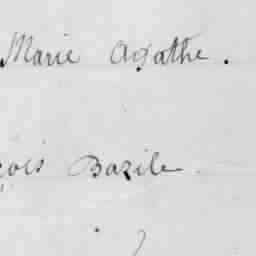 Marie Agathe.
çois Bazile